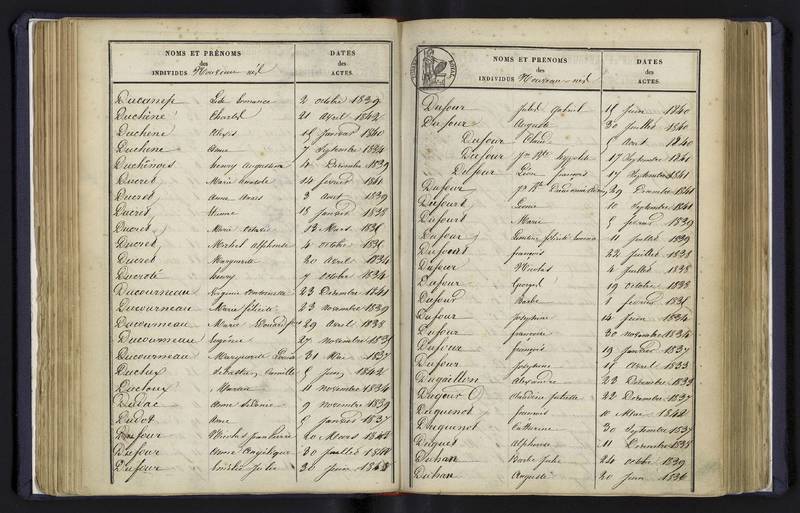 NOMS ET PRÉNOMS
des
INDIVIDUS Nouveau-nés
DATES
des
ACTES.
Ducamp 2 octobre 1839
Duchène Charles 21 Avril 1842
Duchene Alexis 15 Janvier 1840
Duchene Anne 7 Septembre 1834
Duchénois henry Augustin 4 Décembre 1839
Ducret Marie 14 février 1841
Ducret Anne 3 Avril 1839
Ducret Etienne 18 Janvier 1838
Ducret Marie 13 Mars 1836
Ducret Michel Alphonse 4 octobre 1836
Ducret Marguerite 20 Avril 1834
Ducroté henry 7 octobre 1834
Ducourneau Virginie 23 Décembre 1841
Ducourneau Marie félicité 23 Novembre 1839
Ducourneau Marie 29 Avril 1838
Ducourneau Eugène 27 Novembre
Ducourneau Marguerite Louise 31 Mai 1837
Duclux Sébastien Camille 5 Juin 1842
Ducloux Martin 11 Novembre 1834
Dudac Anne 9 Novembre 1839
Dudot Anne 5 Janvier 1837
Dufour Nicolas Jean Pierre 20 Mars 1842
Dufour Anne Angélique 30 Juillet
Dufour Julie 30 Juin
NOMS ET PRÉNOMS
des
INDIVIDUS Nouveau-nés
DATES
des
ACTES.
Dufour Jules Gabriel 15 Juin 1840
Dufour Auguste 30 Juillet 1840
Dufour Claire 5 Avril 1840
Dufour Jn Bte hyppolite 17 Septembre 1841
Dufour Léon françois 17 Septembre 1841
Dufour Jn Bte 29 Décembre 1841
Dufourt 10 Septembre 1841
Dufourt Marie 5 février 1839
Dufour 11 Juillet 1839
Dufourt françois 22 Juillet 1838
Dufour Nicolas 4 Juillet 1838
Dufour George 19 octobre 1838
Dufour Barbe 1 février 1836
Dufour Joséphine 14 Juin 1834
Dufour françoise 30 Novembre 1834
Dufour françois 19 Janvier 1837
Dufour Joséphine 18 Avril 1833
Alexandre 23 Décembre 1839
Juliette 22 Décembre 1837
Duguenot 10 Mai 1842
Duguenot Catherine 30 Septembre 1837
Duguet Alphonse 11 Décembre 1838
Duhan Barbe Julie 24 octobre 1839
Duhan Auguste 20 Juin 1836